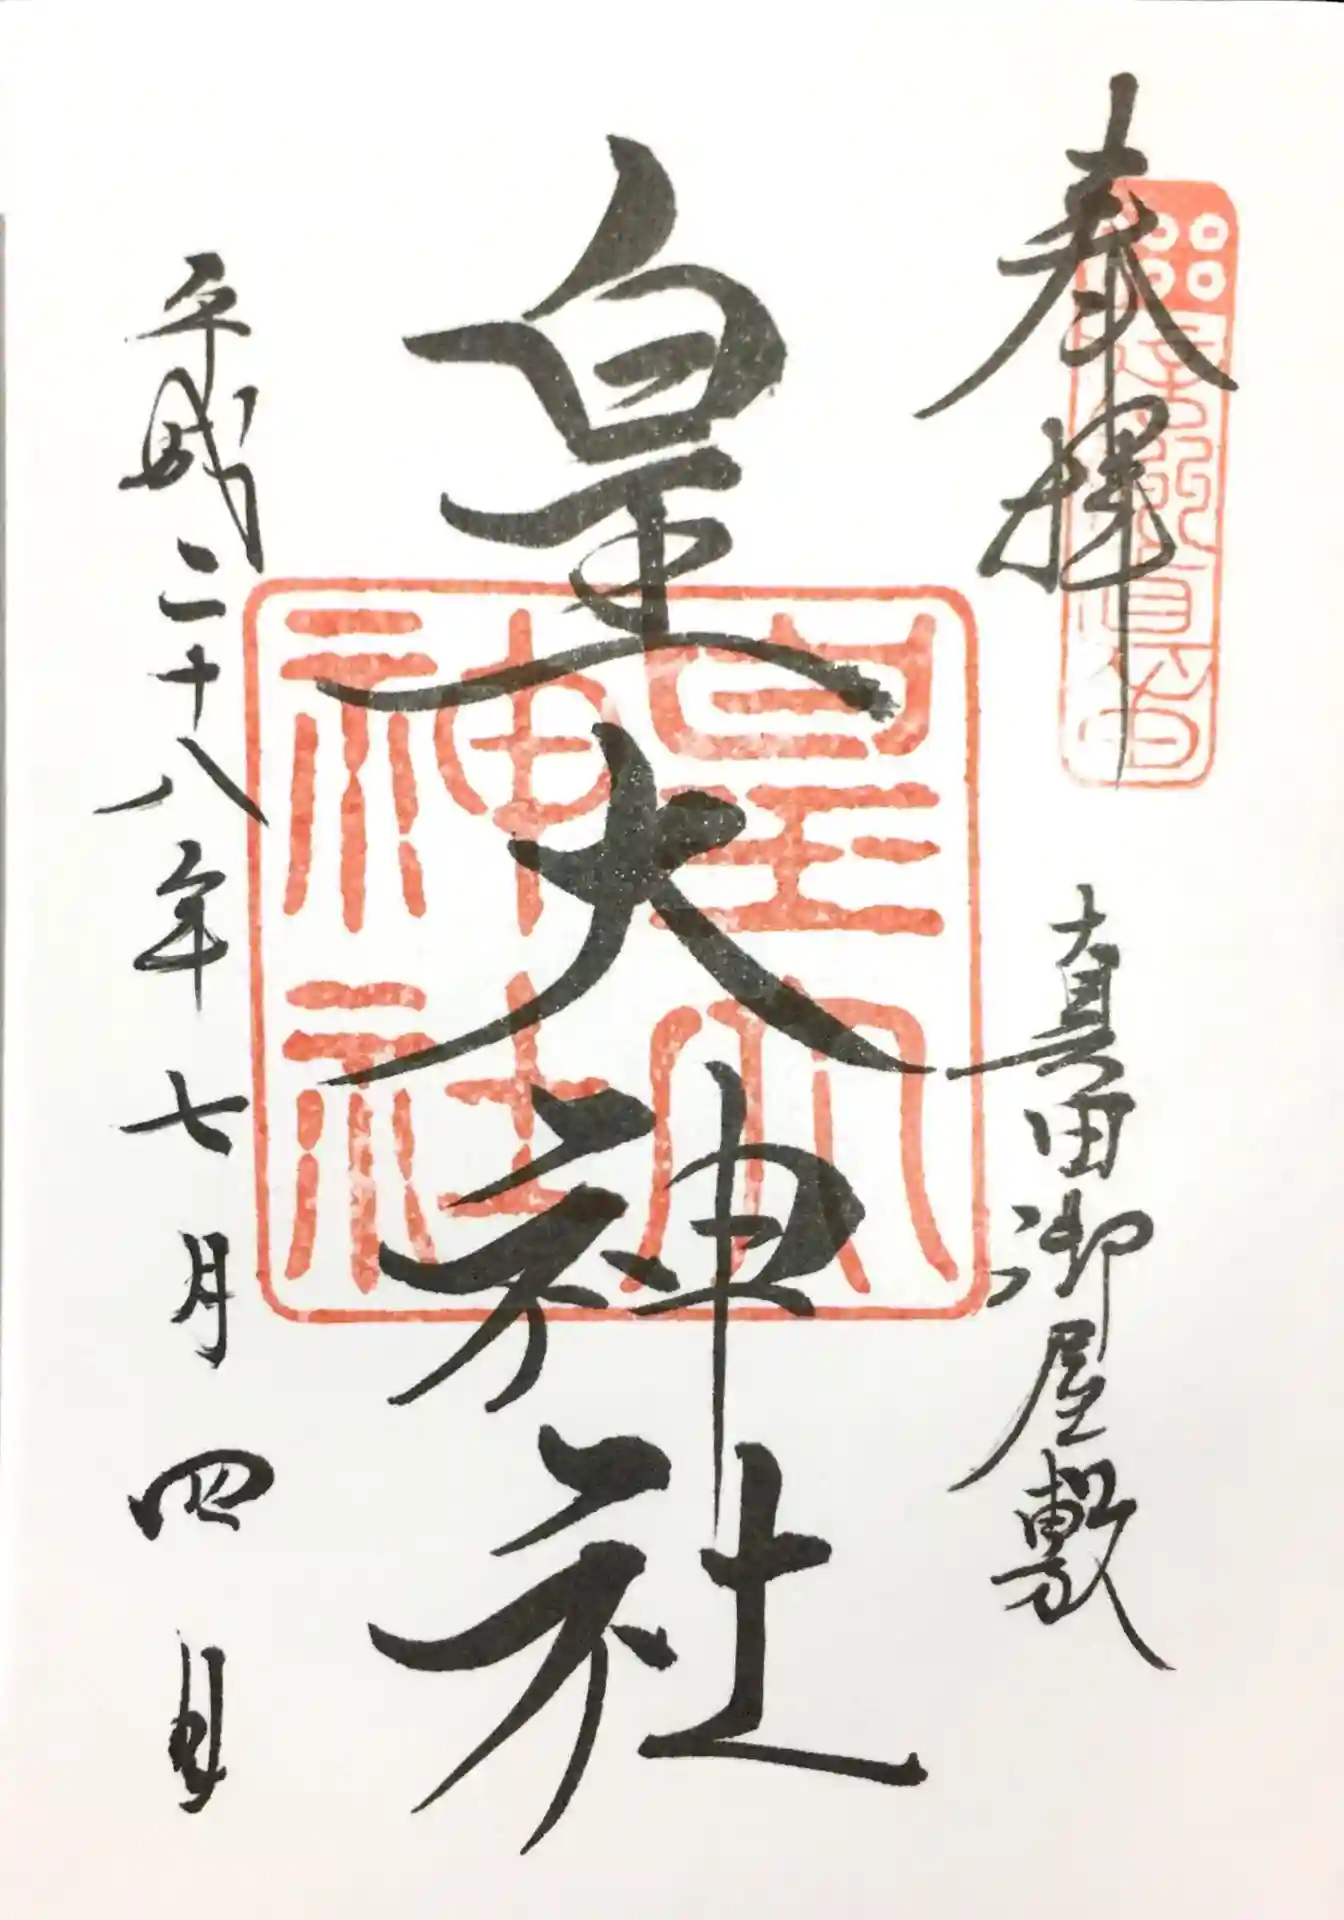 奉拝
真田御屋敷
皇大神社
皇大
神社
平成二十八年七月四日